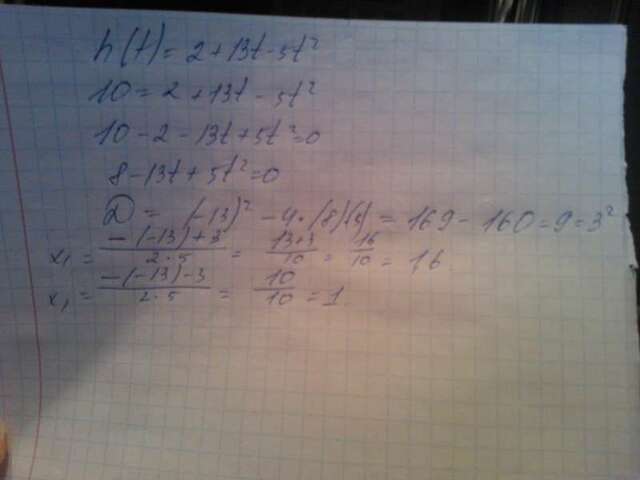 h(t) = 2 + 13t - 5t²
10 = 2 + 13t - 5t²
10 - 2 - 13t + 5t² = 0
8 - 13t + 5t² = 0
D = (-13)² - 4·(8)(5) = 169 - 160 = 9 = 3²
x₁ = -(-13)+3 / 2·5 = 13+3 / 10 = 16 / 10 = 1,6.
x₁ = -(-13)-3 / 2·5 = 10 / 10 = 1.